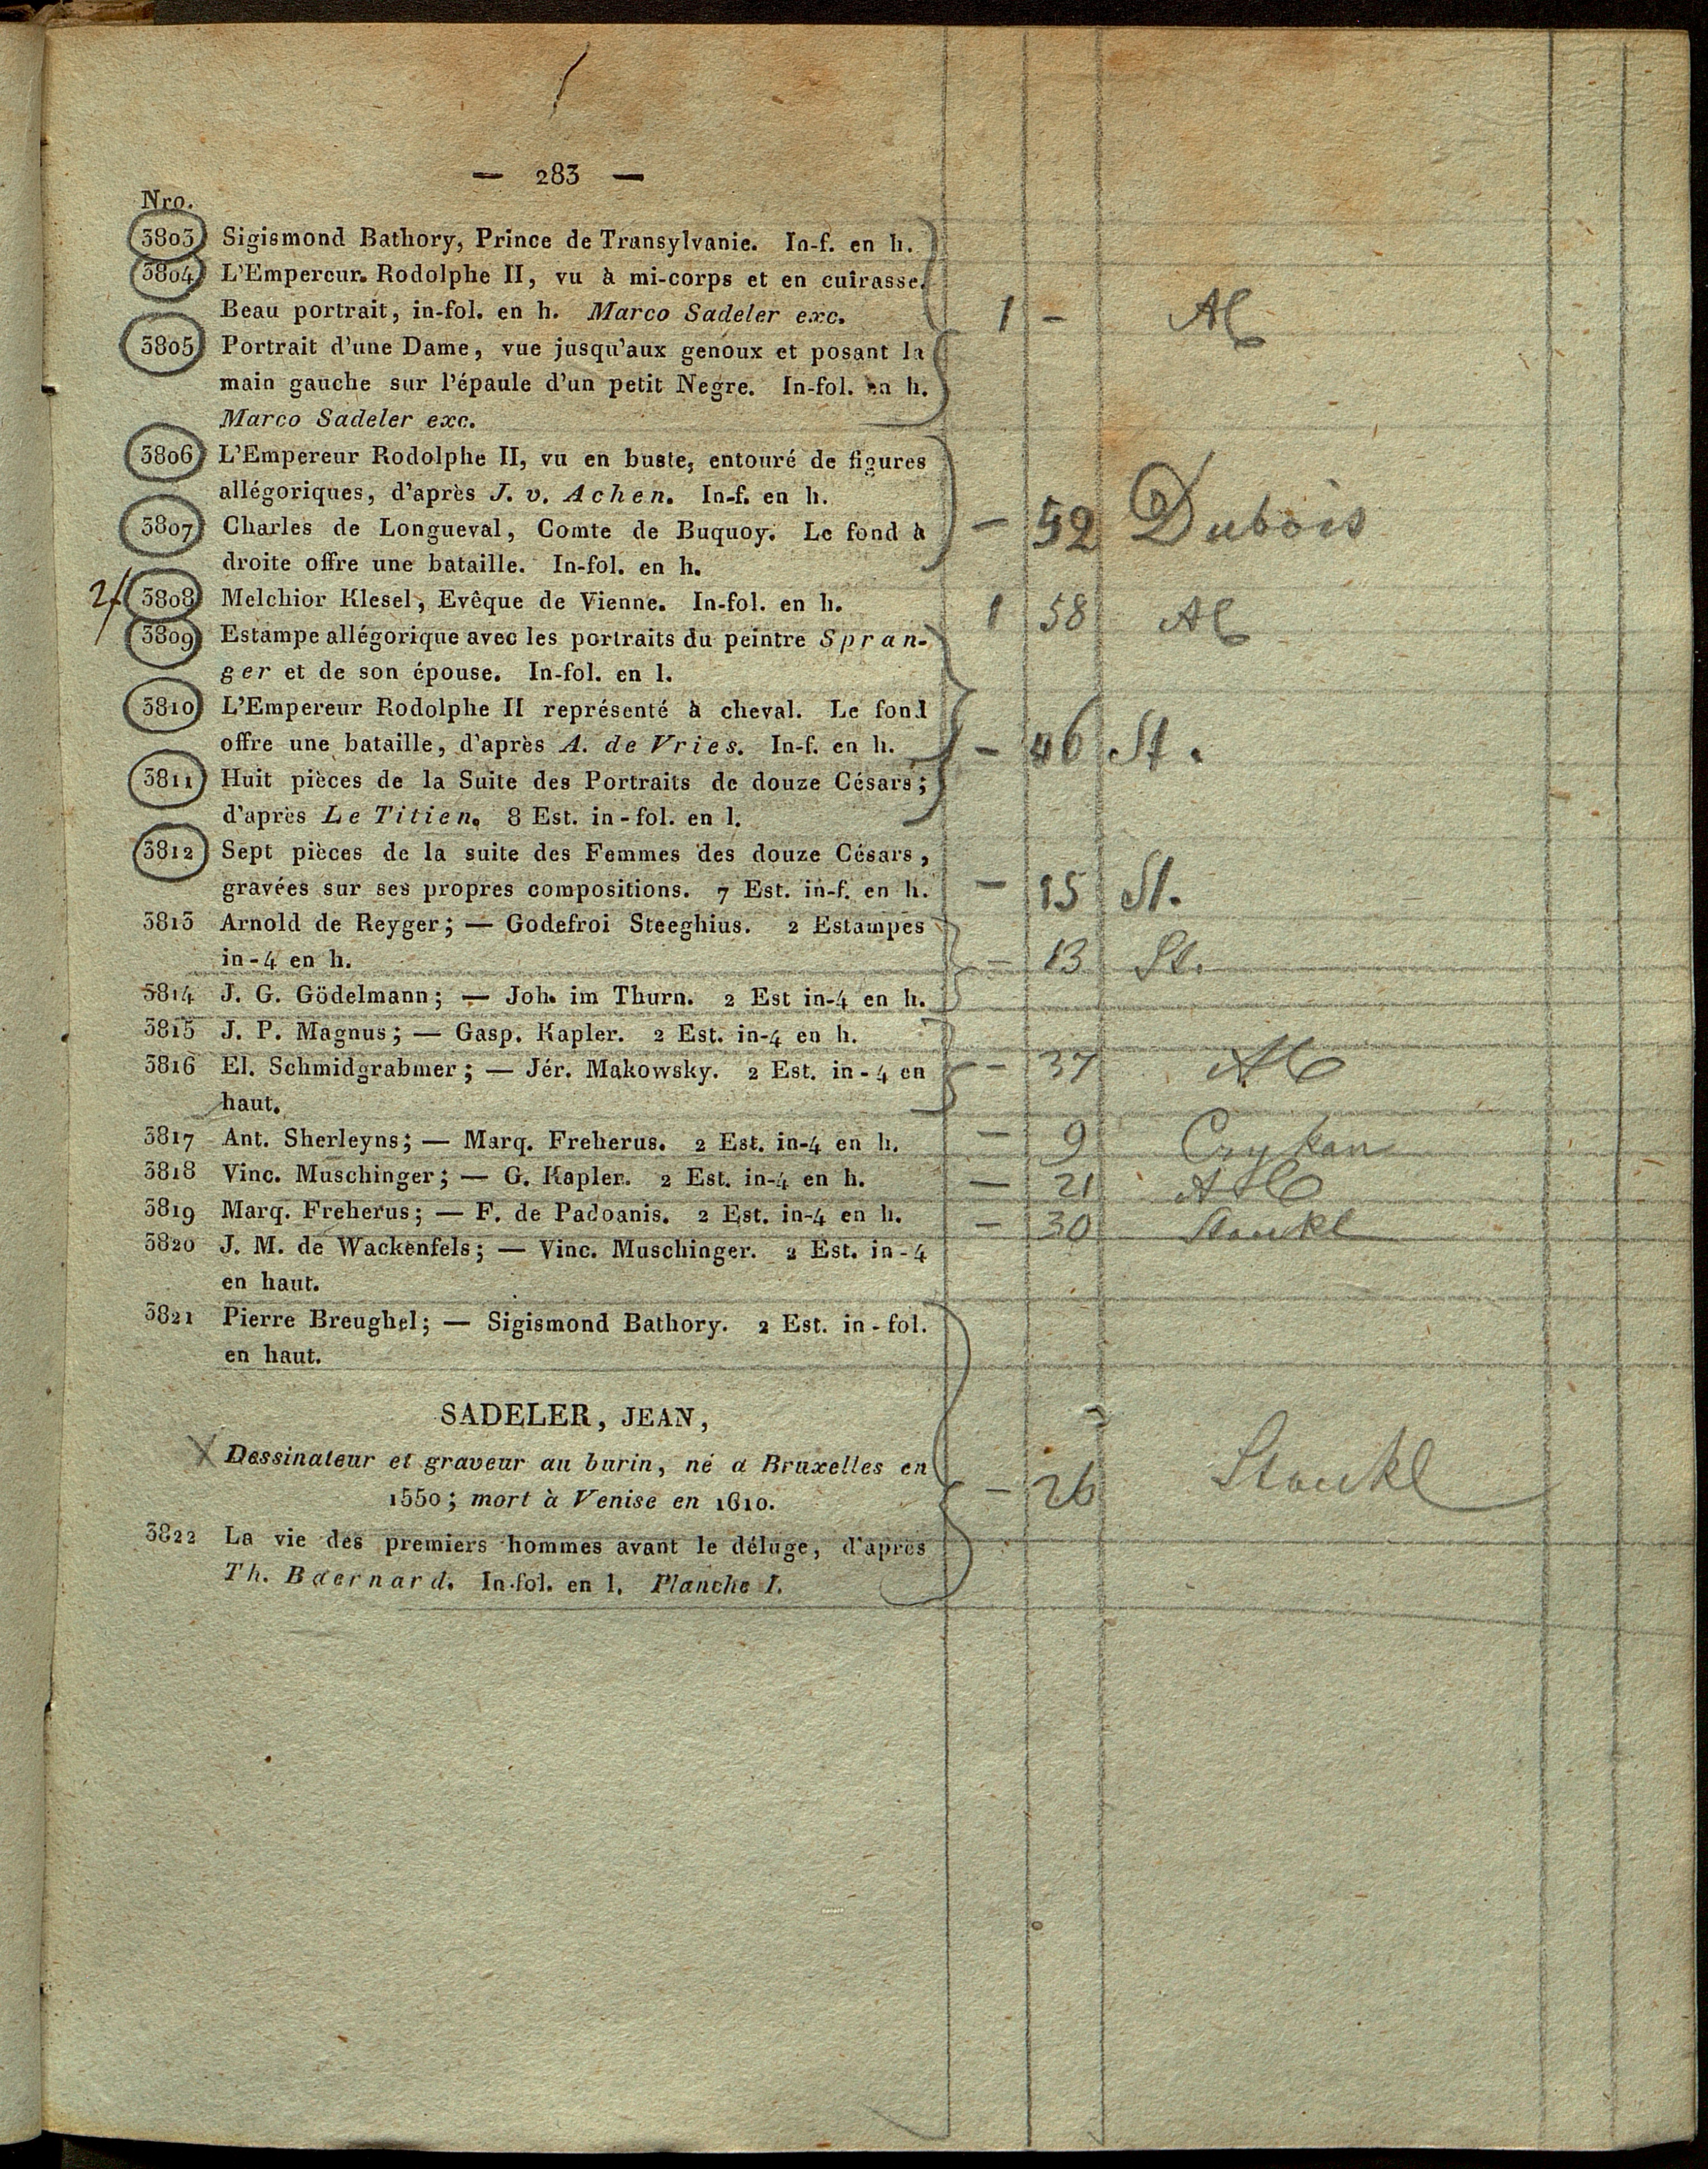 — 283 —
Nro.
3803 Sigismond Bathory, Prince de Transylvanie. In-f. en h.
3804 L'Empereur. Rodolphe II, vu à mi-corps et en cuirasse.
Beau portrait, in-fol. en h. Marco Sadeler exc.
1 - Al
3805 Portrait d'une Dame, vue jusqu'aux genoux et posant la
main gauche sur l'épaule d'un petit Negre. In-fol. en h.
Marco Sadeler exc.
3806 L'Empereur Rodolphe II, vu en buste, entouré de figures
allégoriques, d'après J. v. Achen. In-f. en h.
3807 Charles de Longueval, Comte de Buquoy. Le fond à
droite offre une bataille. In-fol. en h.
— 52 Dubois
3808 Melchior Klesel, Evêque de Vienne. In-fol. en h.
1 58 Al
3809 Estampe allégorique avec les portraits du peintre Spran-
ger et de son épouse. In-fol. en l.
3810 L'Empereur Rodolphe II représenté à cheval. Le fond
offre une bataille, d'après A. de Vries. In-f. en h.
— 46 St.
3811 Huit pièces de la Suite des Portraits de douze Césars;
d'après Le Titien. 8 Est. in-fol. en l.
3812 Sept pièces de la suite des Femmes des douze Césars,
gravées sur ses propres compositions. 7 Est. in-f. en h.
— 15 St.
3813 Arnold de Reyger; — Godefroi Steeghius. 2 Estampes
in-4 en h.
— 13 St.
3814 J. G. Gödelmann; — Joh. im Thurn. 2 Est in-4 en h.
3815 J. P. Magnus; — Gasp. Kapler. 2 Est. in-4 en h.
3816 El. Schmidgrabmer; — Jér. Makowsky. 2 Est. in-4 en
haut.
— 37
3817 Ant. Sherleyns; — Marq. Freherus. 2 Est. in-4 en h. — 9
3818 Vinc. Muschinger; — G. Kapler. 2 Est. in-4 en h. — 21
3819 Marq. Freherus; — F. de Padoanis. 2 Est. in-4 en h. — 30 Stoukl
3820 J. M. de Wackenfels; — Vinc. Muschinger. 2 Est. in-4
en haut.
3821 Pierre Breughel; — Sigismond Bathory. 2 Est. in-fol.
en haut.
SADELER, JEAN,
Dessinateur et graveur au burin, né à Bruxelles en
1550; mort à Venise en 1610.
— 26 Stoukl
3822 La vie des premiers hommes avant le déluge, d'après
Th. Baernard. In-fol. en l. Planche I.